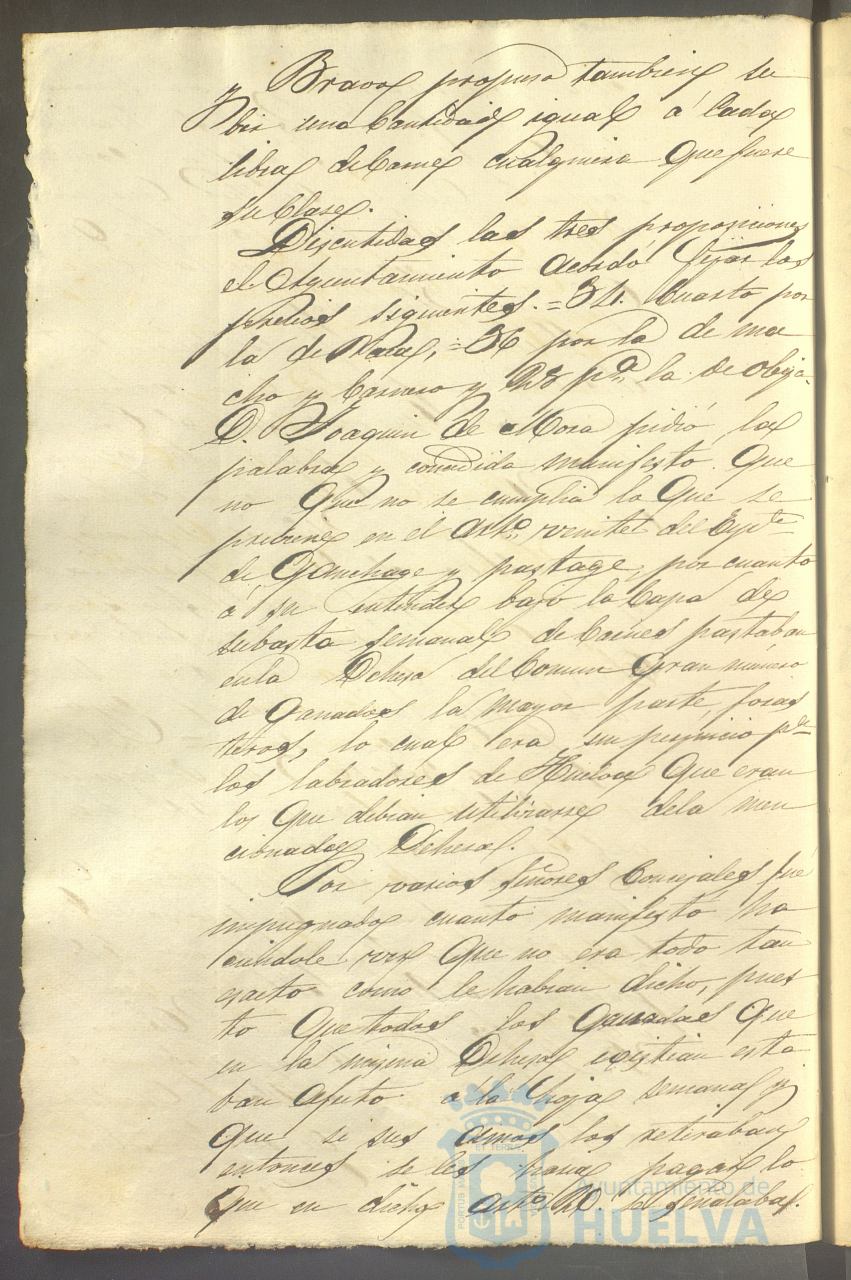 Bravo propuso tambien su
bir una Cantidad igual á Cada
libra de Carne cualquiera que fuere
su Clase.
Discutidas las tres proposiciones
el Ayuntamiento acordó fijar los
precios siguientes. = 34. Cuarto por
la de Vaca, = 36 por la de ma
cho y Carnero y 28 pa. la de Obeja.
D. Joaquin de Mora pidió la
palabra y concedida manifesto. Que
no que no se cumplia lo que se
previene en el Arto. del Expte.
de Ganchage y pastage, por cuanto
á su entender bajo la Capa de
subasta semanal de Carnes pastaban
en la Dehesa del Comun Gran número
de Ganados la mayor parte foras
teros, lo cual era un perjuicio pa.
los labradores de Huelva que eran
los que debian utilizarse de la men
cionada Dehesa.
Por varios Señores Concejales fué
impugnado cuanto manifesto ha
ciendole ver que no era todo tan
exacto como le habian dicho, pues
to que todos los Ganados que
en la misma Dehesa existian esta
ban afecto a la hoja semanal y
que si sus amos los retiraban
entonces se les haria pagar lo
que en dicho arto. 20. se señalaba.
PORTUS MARIS ET TERRÆ
Ayuntamiento de
HUELVA